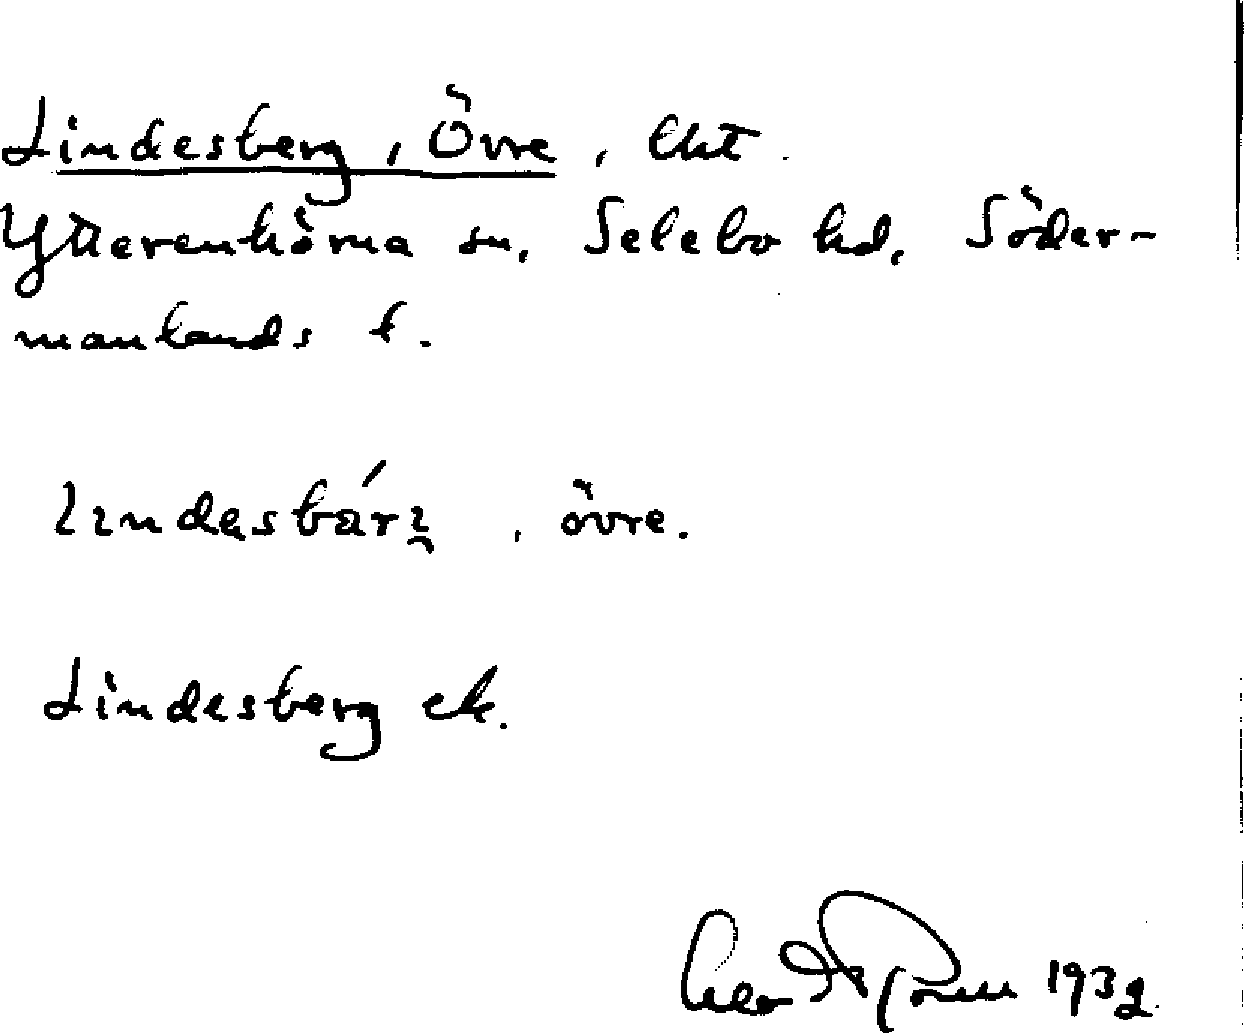 Lindesberg, Övre, lht.
Ytterenhörna sn. Selebo hd. Söder-
manlands l.
, övre.
Lindesberg ek.
1932